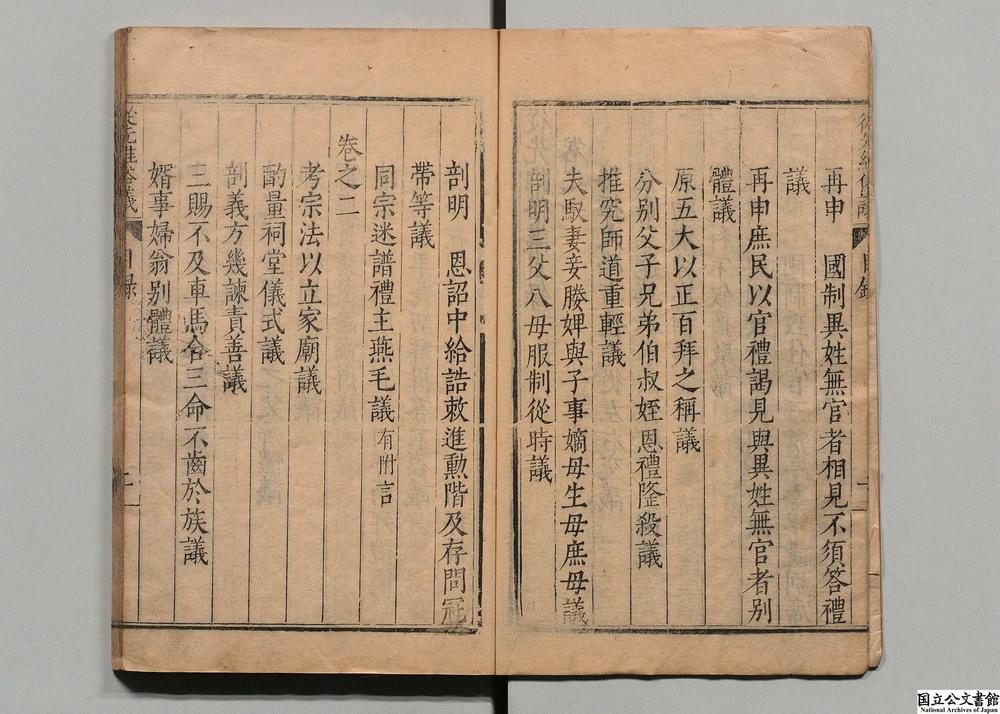 再申　國制異姓無官者相見不須答禮
議
再申庶民以官禮謁見與異姓無官者別
體議
原五大以正百拜之稱議
分別父子兄弟伯叔姪恩禮隆殺議
推究師道重輕議
夫馭妻妾媵婢與子事嫡母生母庶母議
剖明三父八母服制從時議
剖明　恩詔中給誥敕進勳階及存問冠
帶等議
同宗迷譜禮主燕毛議有附言
卷之二
考宗法以立家廟議
酌量祠堂儀式議
剖義方幾諫責善議
三賜不及車馬合三命不齒於族議
婿事婦翁别體議
目錄
二
国立公文書館
National Archives of Japan